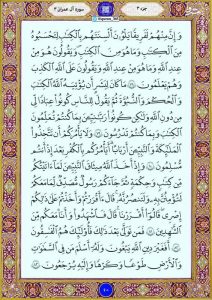 جزء ۳
سورة آل عمران ۳
وَإِنَّ مِنْهُمْ لَفَرِيقًا يَلْوُۥنَ أَلْسِنَتَهُم بِٱلْكِتَٰبِ لِتَحْسَبُوهُ
مِنَ ٱلْكِتَٰبِ وَمَا هُوَ مِنَ ٱلْكِتَٰبِ وَيَقُولُونَ هُوَ مِنْ
عِندِ ٱللَّهِ وَمَا هُوَ مِنْ عِندِ ٱللَّهِ وَيَقُولُونَ عَلَى ٱللَّهِ ٱلْكَذِبَ
وَهُمْ يَعْلَمُونَ ۝٧٨ مَا كَانَ لِبَشَرٍ أَن يُؤْتِيَهُ ٱللَّهُ ٱلْكِتَٰبَ
وَٱلْحُكْمَ وَٱلنُّبُوَّةَ ثُمَّ يَقُولَ لِلنَّاسِ كُونُوا۟ عِبَادًا لِّى
مِن دُونِ ٱللَّهِ وَلَٰكِن كُونُوا۟ رَبَّٰنِيِّۦنَ بِمَا كُنتُمْ تُعَلِّمُونَ
ٱلْكِتَٰبَ وَبِمَا كُنتُمْ تَدْرُسُونَ ۝٧٩ وَلَا يَأْمُرَكُمْ أَن تَتَّخِذُوا۟
ٱلْمَلَٰٓئِكَةَ وَٱلنَّبِيِّۦنَ أَرْبَابًا أَيَأْمُرُكُم بِٱلْكُفْرِ بَعْدَ إِذْ أَنتُم
مُّسْلِمُونَ ۝٨٠ وَإِذْ أَخَذَ ٱللَّهُ مِيثَٰقَ ٱلنَّبِيِّۦنَ لَمَآ ءَاتَيْتُكُم
مِّن كِتَٰبٍ وَحِكْمَةٍ ثُمَّ جَآءَكُمْ رَسُولٌ مُّصَدِّقٌ لِّمَا مَعَكُمْ
لَتُؤْمِنُنَّ بِهِۦ وَلَتَنصُرُنَّهُۥ قَالَ ءَأَقْرَرْتُمْ وَأَخَذْتُمْ عَلَىٰ ذَٰلِكُمْ
إِصْرِى قَالُوٓا۟ أَقْرَرْنَا قَالَ فَٱشْهَدُوا۟ وَأَنَا۠ مَعَكُم مِّنَ
ٱلشَّٰهِدِينَ ۝٨١ فَمَن تَوَلَّىٰ بَعْدَ ذَٰلِكَ فَأُو۟لَٰٓئِكَ هُمُ ٱلْفَٰسِقُونَ
۝٨٢ أَفَغَيْرَ دِينِ ٱللَّهِ يَبْغُونَ وَلَهُۥٓ أَسْلَمَ مَن فِى ٱلسَّمَٰوَٰتِ
وَٱلْأَرْضِ طَوْعًا وَكَرْهًا وَإِلَيْهِ يُرْجَعُونَ ۝٨٣
٦٠